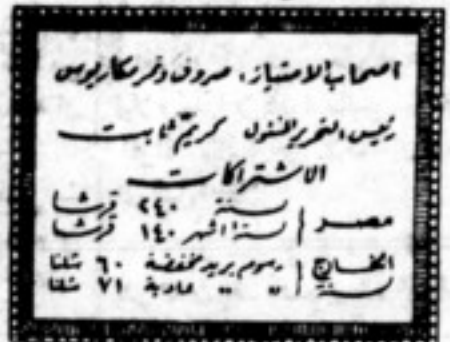 اصحاب الامتياز، صروف ونمر ومكاريوس
رئيس التحرير المسئول كريم ثابت
الاشتراكات
مصر سنة ٢٤٠ قرشا
ستة اشهر ١٤٠ قرشا
الخارج رسوم بريد مخفضة ٦٠ شلنا
سنة " " عادية ٧١ شلنا